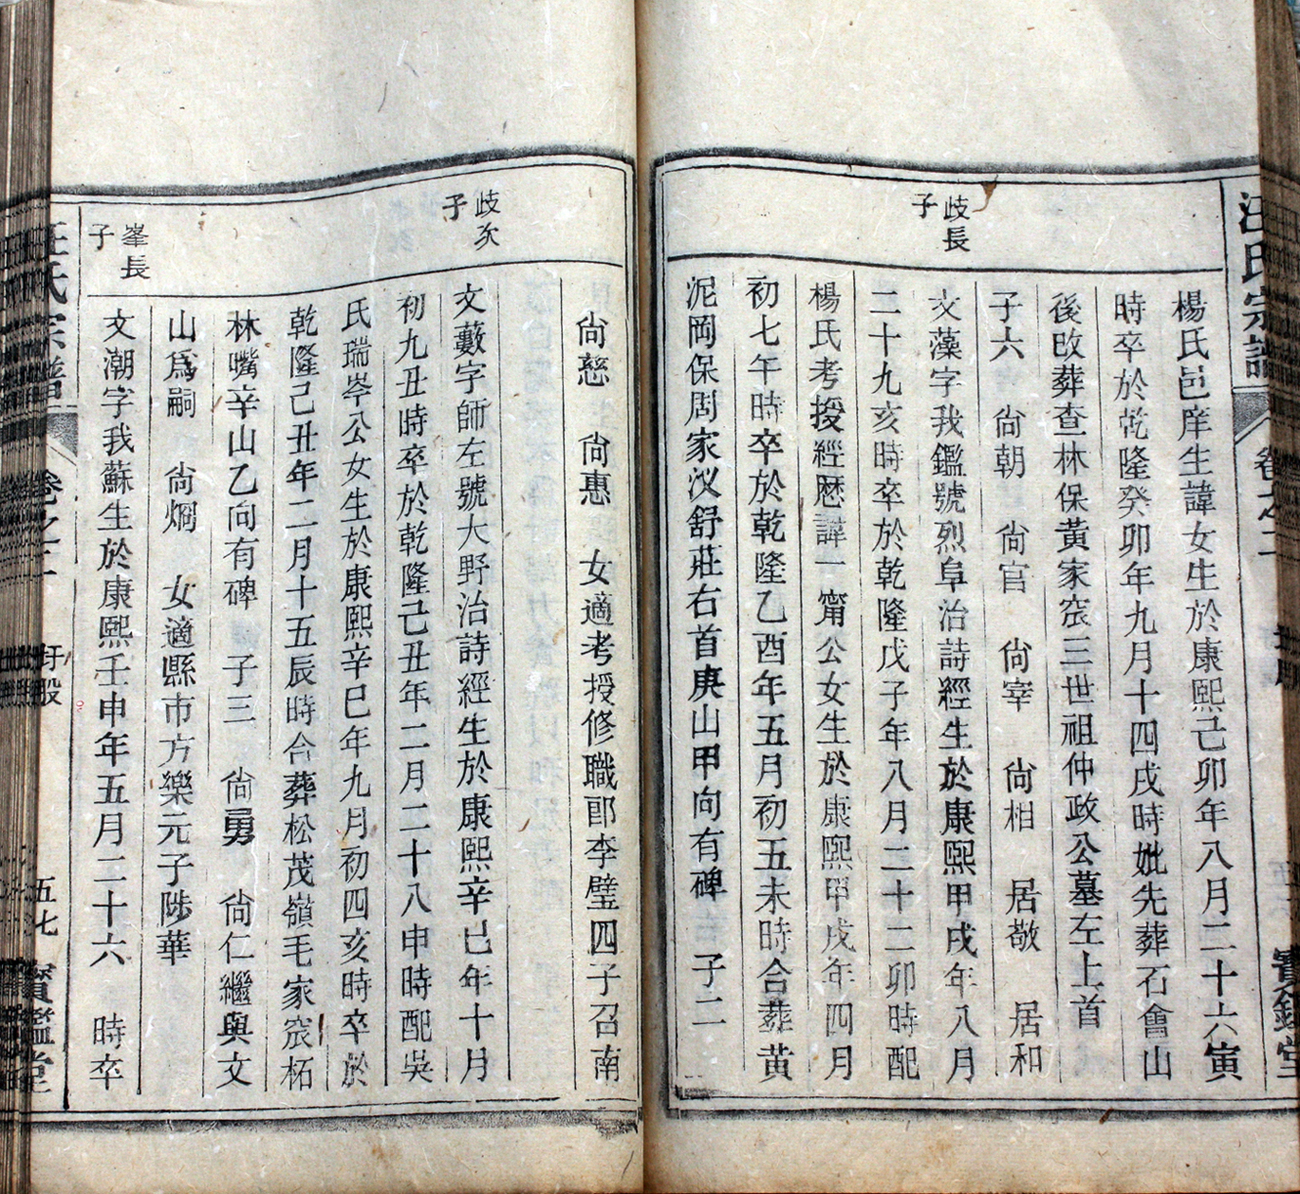 汪氏宗譜
卷之二
寶鑑堂
楊氏邑庠生諱女生於康熙己卯年八月二十六寅
時卒於乾隆癸卯年九月十四戌時妣先葬石會山
後改葬查林保黃家窊三世祖仲政公墓左上首
子六 尙朝 尙官 尙宰 尙相 居敬 居和
歧長子
文藻字我鑑號烈阜治詩經生於康熙甲戌年八月
二十九亥時卒於乾隆戊子年八月二十二卯時配
楊氏考授經歷諱一甯公女生於康熙甲戌年四月
初七午時卒於乾隆乙酉年五月初五未時合葬黃
泥岡保周家汊舒莊右首庚山甲向有碑 子二
尙慈 尙惠 女適考授修職郎李璧四子召南
歧次子
文藪字師左號大野治詩經生於康熙辛巳年十月
初九丑時卒於乾隆己丑年二月二十八申時配吳
氏瑞岑公女生於康熙辛巳年九月初四亥時卒於
乾隆己丑年二月十五辰時合葬松茂嶺毛家窊柘
林嘴辛山乙向有碑 子三 尙勇 尙仁繼與文
山爲嗣 尙烱 女適縣市方樂元子陟華
峯長子
文潮字我蘇生於康熙壬申年五月二十六 時卒
汪氏宗譜
卷之二
圩股
五七
寶鑑堂